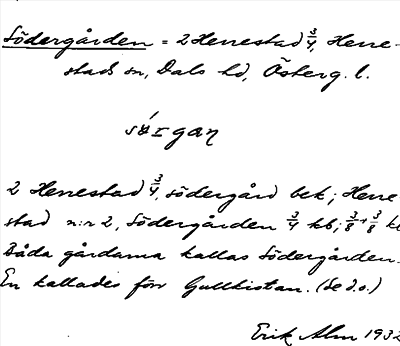 Södergården = 2 Herrestad 3/4, Herre-
stads sn, Dals hd, Österg. l.
2 Herrestad 3/4, södergård bek; Herre
stad n:r 2, Södergården 3/4 kb; 3/8 + 3/8
Båda gårdarna kallas Södergården.
En kallades förr Gullkistan. (Se d.o.)
Erik Alm 1932